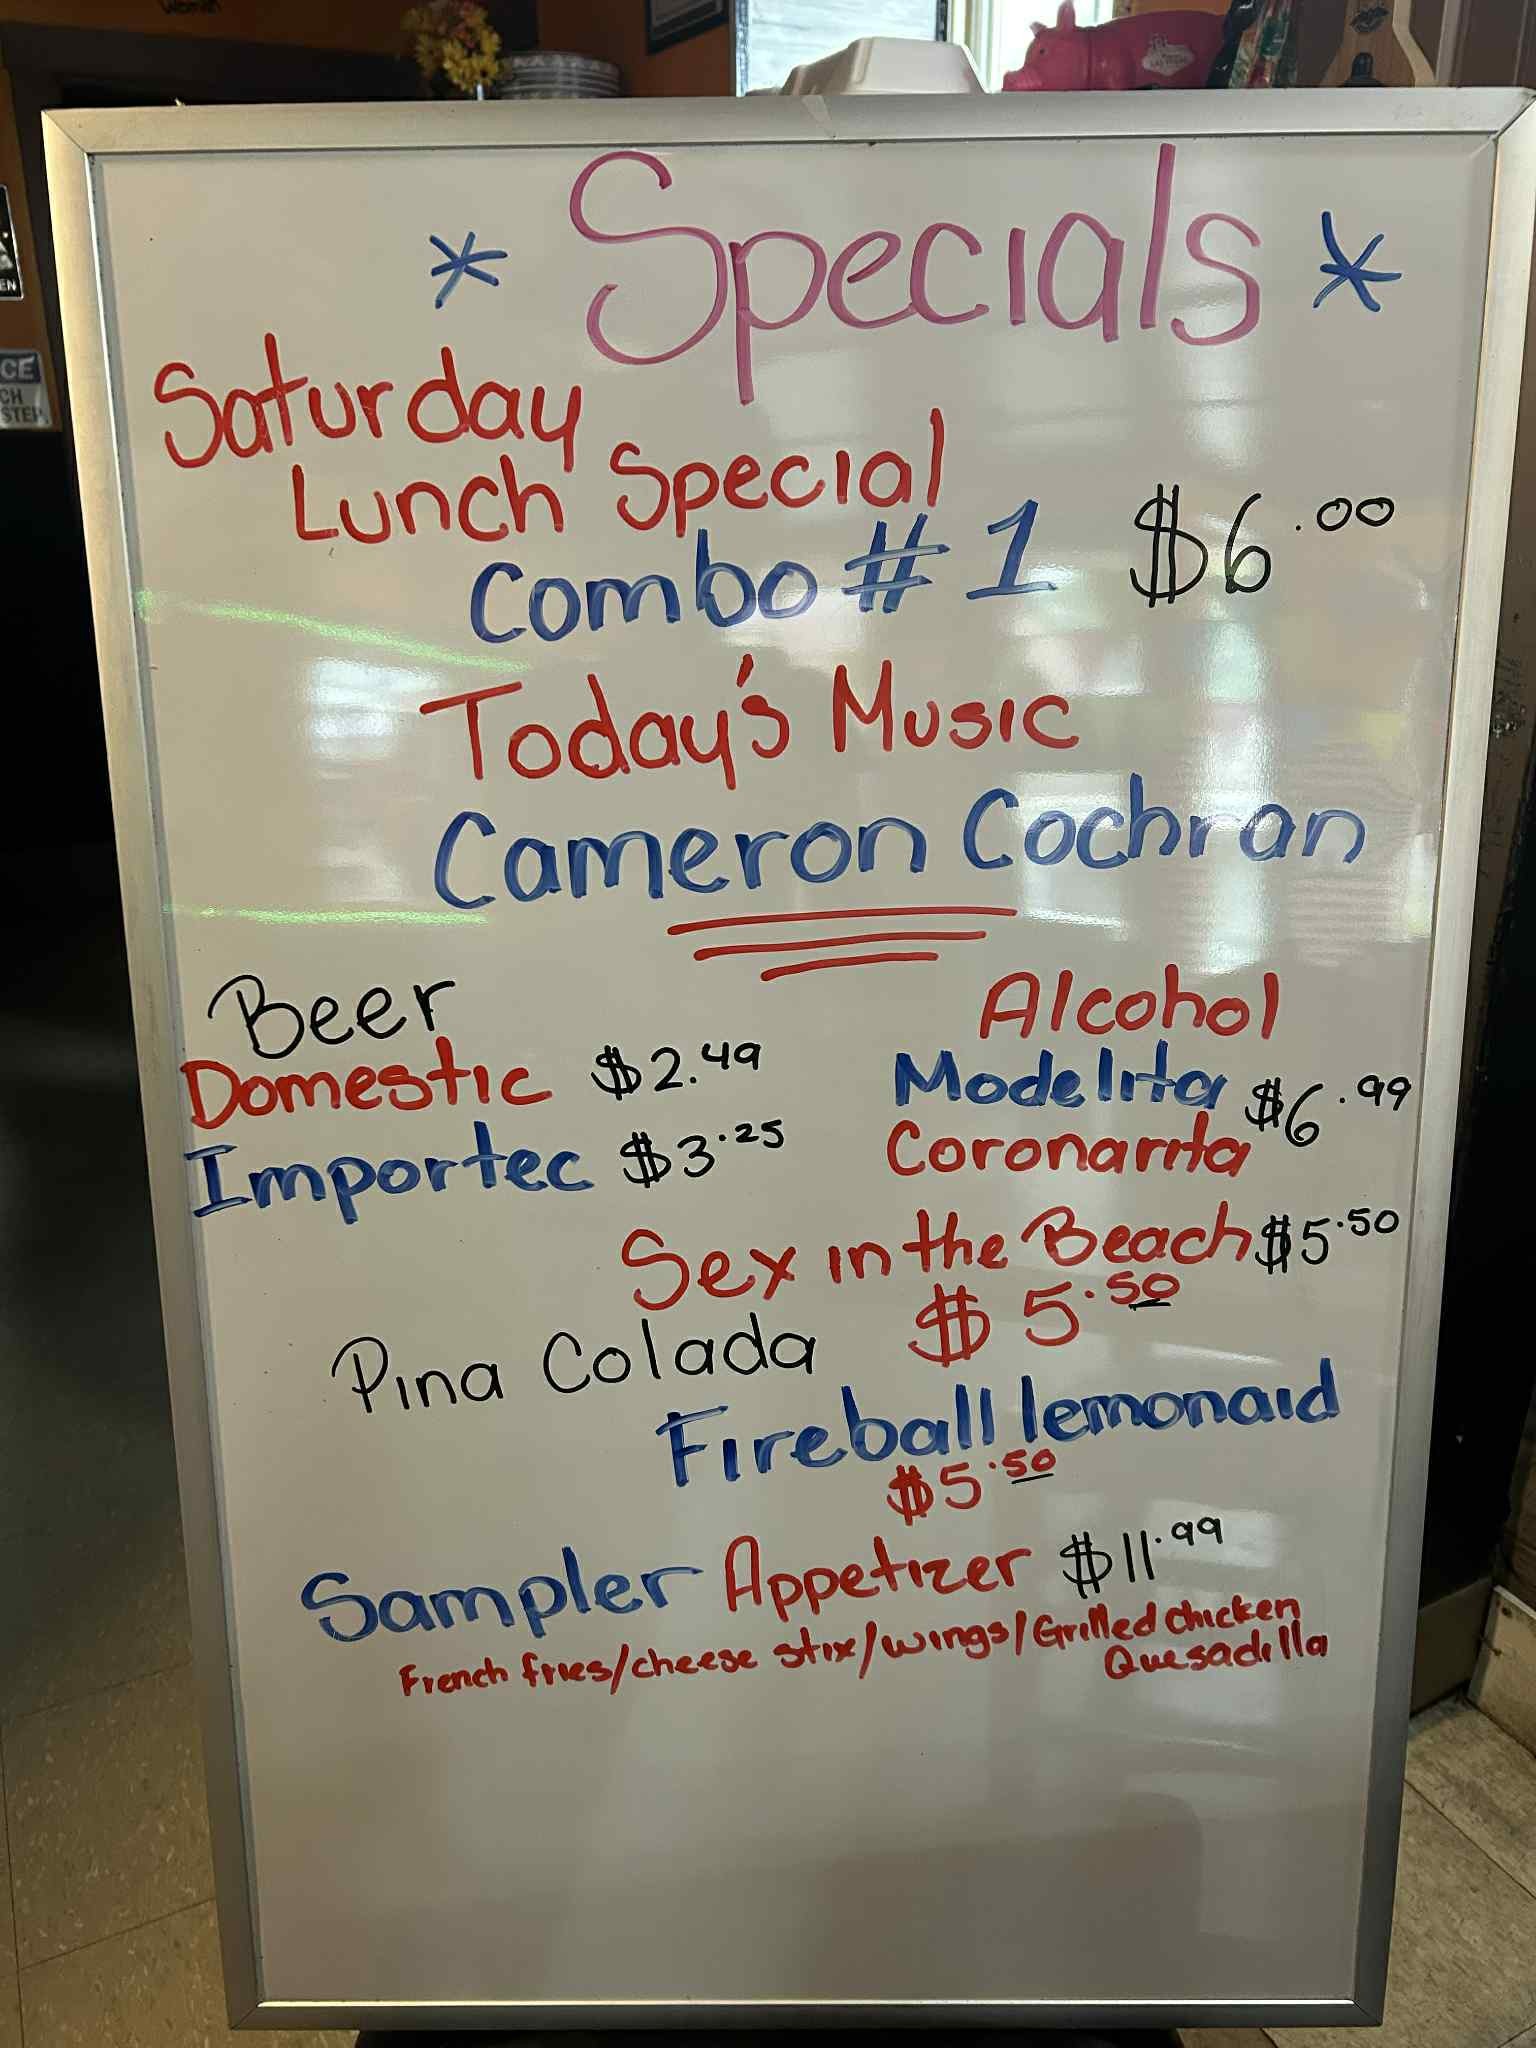 women
EN
CE
CH
STEP
LAS VEGAS
* Specials *
Saturday
Lunch Special
Combo # 1 $6.00
Today's Music
Cameron Cochran
Beer
Domestic $2.49
Importec $3.25
Alcohol
Modelita $6.99
Coronarita
Sex in the Beach $5.50
Pina Colada $5.50
Fireball lemonaid
$5.50
Sampler Appetizer $11.99
French fries/cheese stix/wings/Grilled chicken
Quesadilla